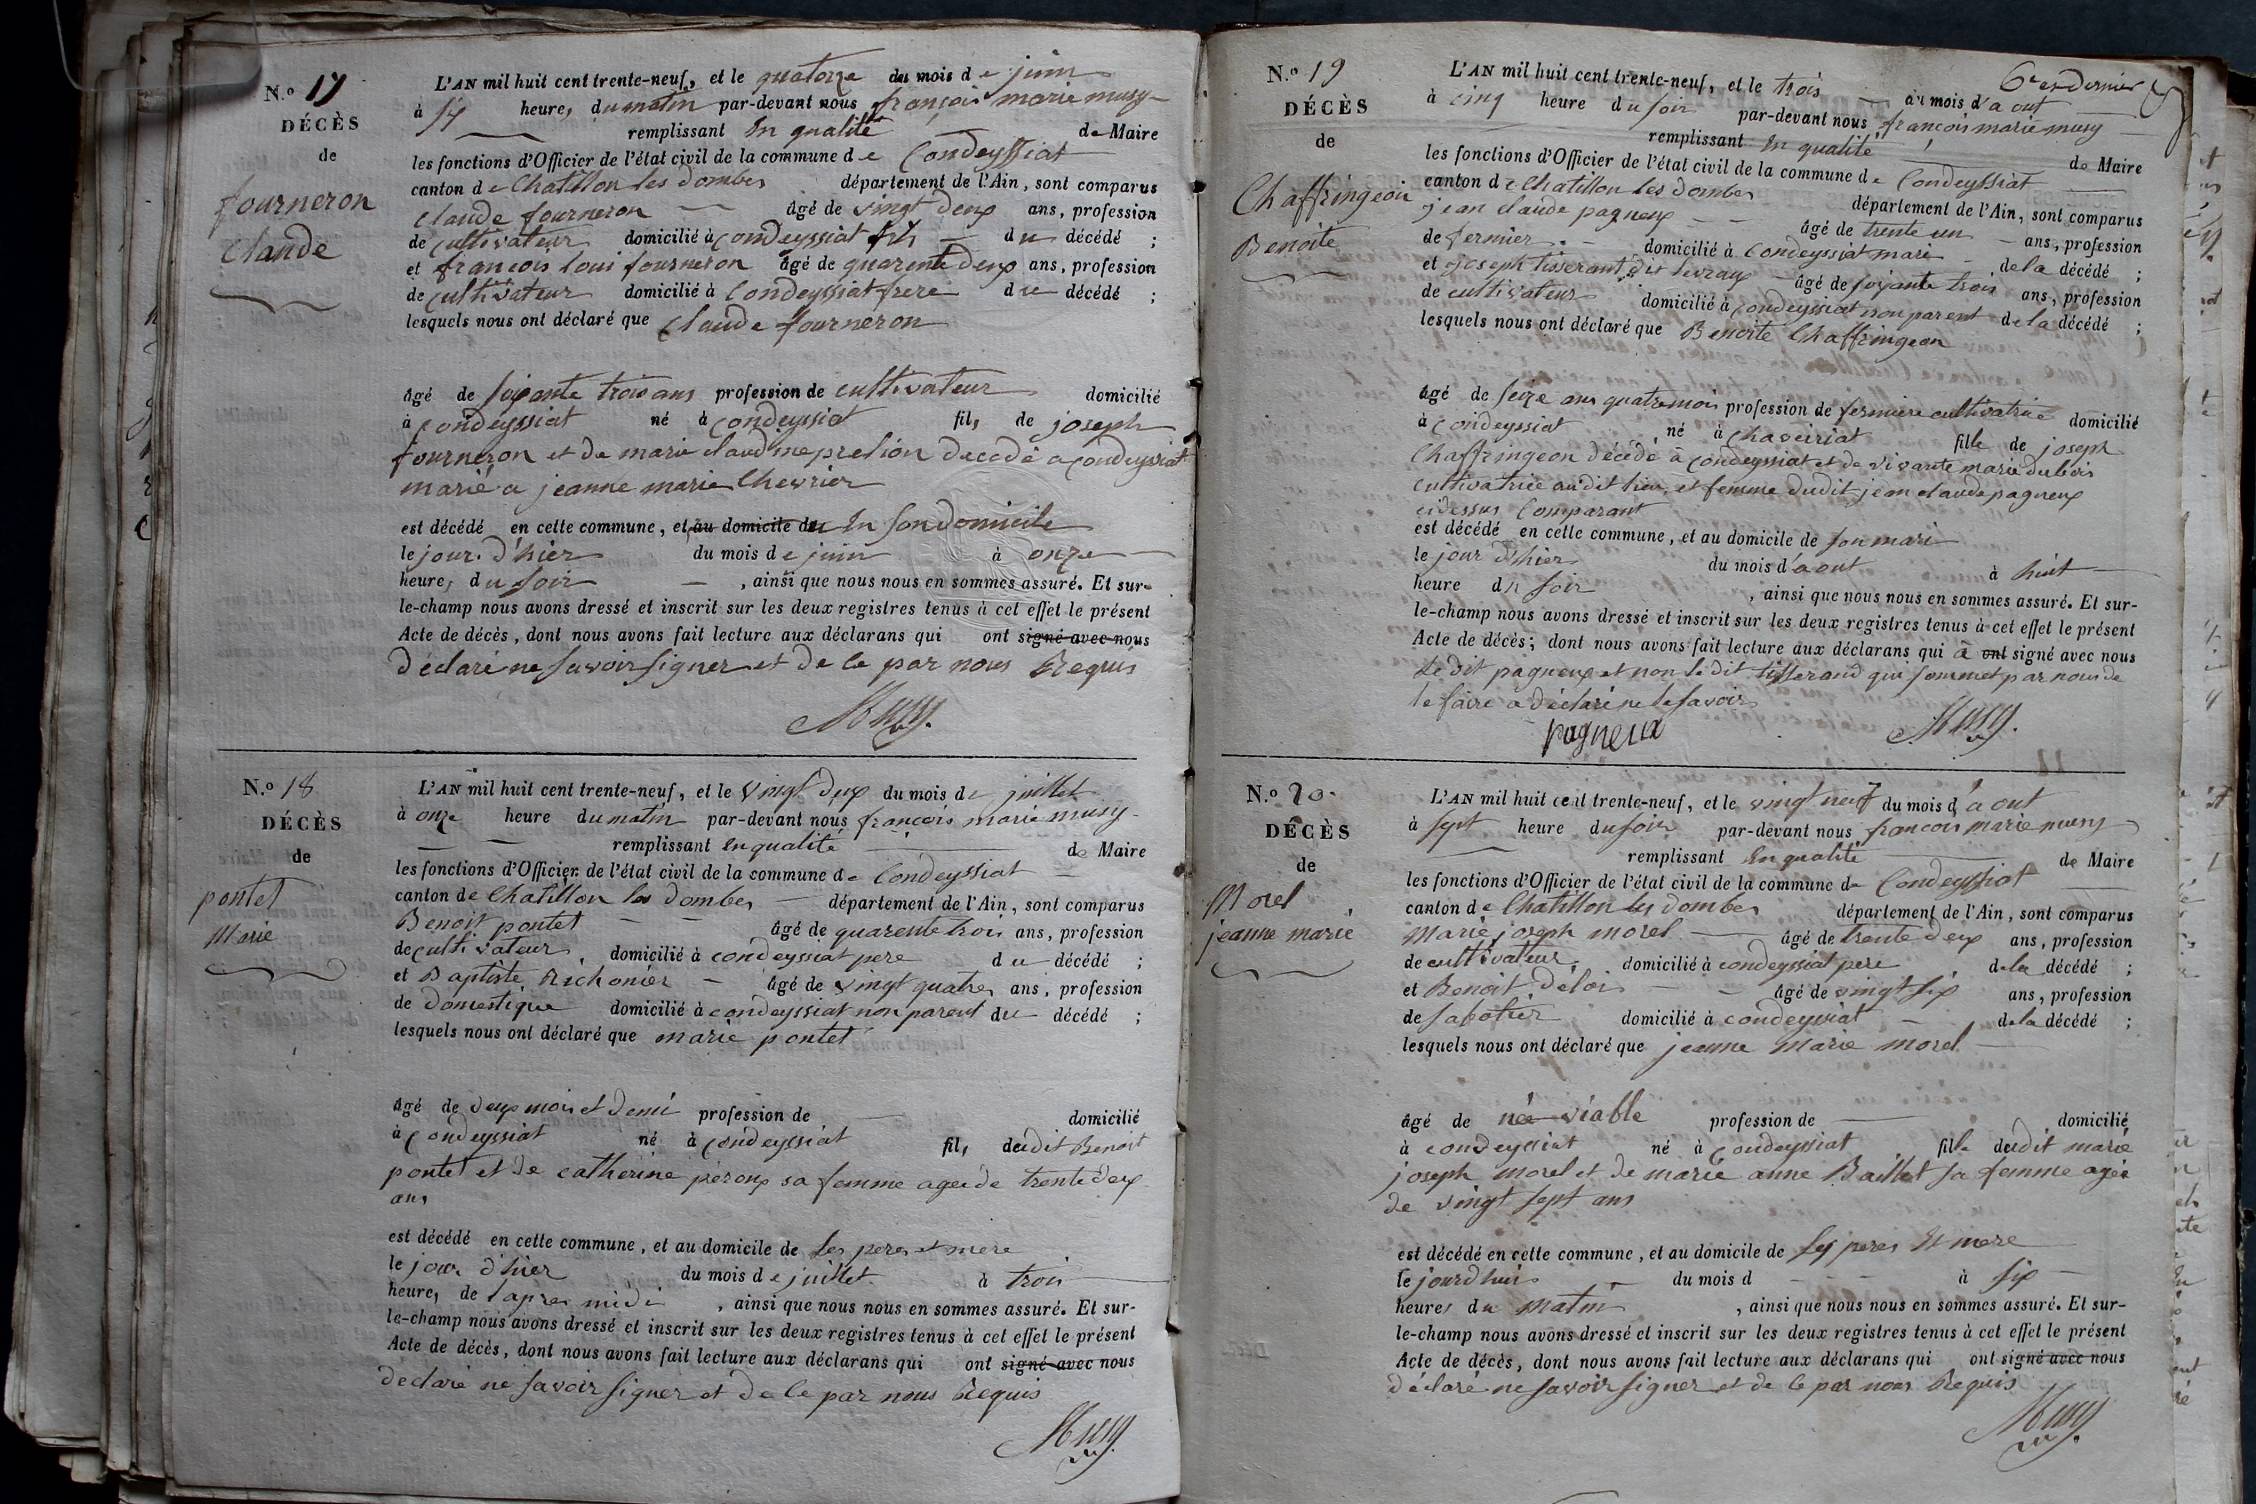 N.o 17
DÉCÈS
de
fourneron
Claude
L'AN mil huit cent trente-neuf, et le quatorze du mois de juin
à heure, du matin par-devant nous françois marie musy
remplissant En qualité de Maire
les fonctions d'Officier de l'état civil de la commune de Condeyssiat
canton de Chatillon les dombes département de l'Ain, sont comparus
Claude fourneron âgé de vingt deux ans, profession
de cultivateur domicilié à condeyssiat fils du décédé ;
et françois loui fourneron âgé de quarente deux ans, profession
de cultivateur domicilié à Condeyssiat frere du décédé ;
lesquels nous ont déclaré que Claude fourneron
âgé de soixante trois ans profession de cultivateur domicilié
à condeyssiat né à condeyssiat fils de joseph
fourneron et de marie claudine prelion décédé a condeyssiat
marié a jeanne marie Chevrier
est décédé en cette commune, et au domicile de En son domicile
le jour d'hier du mois de juin à onze
heures du soir , ainsi que nous nous en sommes assuré. Et sur-
le-champ nous avons dressé et inscrit sur les deux registres tenus à cet effet le présent
Acte de décès, dont nous avons fait lecture aux déclarans qui ont signé avec nous
déclaré ne savoir signer et de ce par nous Requis
Musy.
N.o 18
DÉCÈS
de
pontet
Marie
L'AN mil huit cent trente-neuf, et le vingt deux du mois de juillet
à onze heure du matin par-devant nous françois marie musy
remplissant En qualité de Maire
les fonctions d'Officier de l'état civil de la commune de Condeyssiat
canton de Chatillon les dombes département de l'Ain, sont comparus
Benoit pontet âgé de quarente trois ans, profession
de cultivateur domicilié à condeyssiat pere du décédé ;
et Baptiste Richonier âgé de vingt quatre ans, profession
de domestique domicilié à condeyssiat non parent du décédé ;
lesquels nous ont déclaré que marie pontet
âgé de deux mois et demi profession de domicilié
à condeyssiat né à condeyssiat fils dudit Benoit
pontet et de catherine peroux sa femme agee de trente deux
ans
est décédé en cette commune, et au domicile de ses peres et mere
le jour d'hier du mois de juillet à trois
heures de l'apres midi , ainsi que nous nous en sommes assuré. Et sur-
le-champ nous avons dressé et inscrit sur les deux registres tenus à cet effet le présent
Acte de décès, dont nous avons fait lecture aux déclarans qui ont signé avec nous
declaré ne savoir signer et de ce par nous Requis
Musy
6e et Dernier
N.o 19
DÉCÈS
de
Chaffringeon
Benoite
L'AN mil huit cent trente-neuf, et le trois du mois d'aout
à cinq heure du soir par-devant nous françois marie musy
remplissant En qualité de Maire
les fonctions d'Officier de l'état civil de la commune de Condeyssiat
canton de Chatillon les dombes département de l'Ain, sont comparus
jean claude pagneux âgé de trente un ans, profession
de fermier domicilié à condeyssiat mari de la décédé ;
et joseph tisserant dit âgé de soixante trois ans, profession
de cultivateur domicilié à condeyssiat non parent de la décédé ;
lesquels nous ont déclaré que Benoite Chaffringeon
âgé de seize ans quatre mois profession de fermiere cultivatrice domicilié
à condeyssiat né à chaveiriat fille de joseph
Chaffringeon décédé à condeyssiat et de vivante marie dubois
cultivatrice audit lieu, et femme dudit jean claude pagneux
cidessus Comparant
est décédé en cette commune, et au domicile de son mari
le jour d'hier du mois d'aout à huit
heure du soir , ainsi que nous nous en sommes assuré. Et sur-
le-champ nous avons dressé et inscrit sur les deux registres tenus à cet effet le présent
Acte de décès; dont nous avons fait lecture aux déclarans qui à ont signé avec nous
le dit pagneux et non le dit tisserand qui sommet par nous de
le faire a déclaré ne le savoir
pagneux Musy.
N.o 20
DÉCÈS
de
Morel
jeanne marie
L'AN mil huit cent trente-neuf, et le vingt neuf du mois d'aout
à sept heure du soir par-devant nous francois marie musy
remplissant En qualité de Maire
les fonctions d'Officier de l'état civil de la commune de Condeyssiat
canton de Chatillon les dombes département de l'Ain, sont comparus
Marie joseph morel âgé de trente deux ans, profession
de cultivateur domicilié à condeyssiat pere de la décédé ;
et Benoit Deloi âgé de vingt six ans, profession
de sabotier domicilié à condeyssiat de la décédé ;
lesquels nous ont déclaré que jeanne marie morel
âgé de née viable profession de domicilié
à condeyssiat né à Condeyssiat fille dudit marie
joseph morel et de marie anne Baillet sa femme agée
de vingt sept ans
est décédé en cette commune, et au domicile de ses peres Et mere
le jourdhui du mois d à six
heures du matin , ainsi que nous nous en sommes assuré. Et sur-
le-champ nous avons dressé et inscrit sur les deux registres tenus à cet effet le présent
Acte de décès, dont nous avons fait lecture aux déclarans qui ont signé avec nous
déclaré ne savoir signer et de ce par nous Requis
Musy